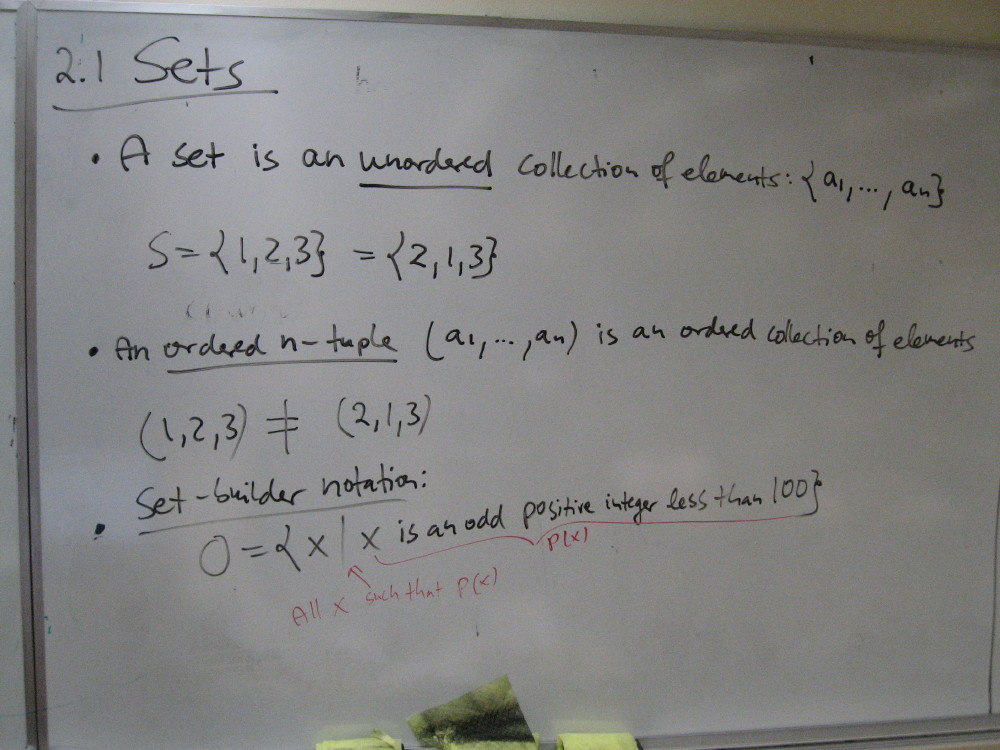 2.1 Sets
• A set is an unordered collection of elements: {a₁,...,aₙ}
S={1,2,3} ={2,1,3}
• An ordered n-tuple (a₁,...,aₙ) is an ordered collection of elements
(1,2,3) ≠ (2,1,3)
• Set-builder notation:
O={x|x is an odd positive integer less than 100}
P(x)
All x such that P(x)